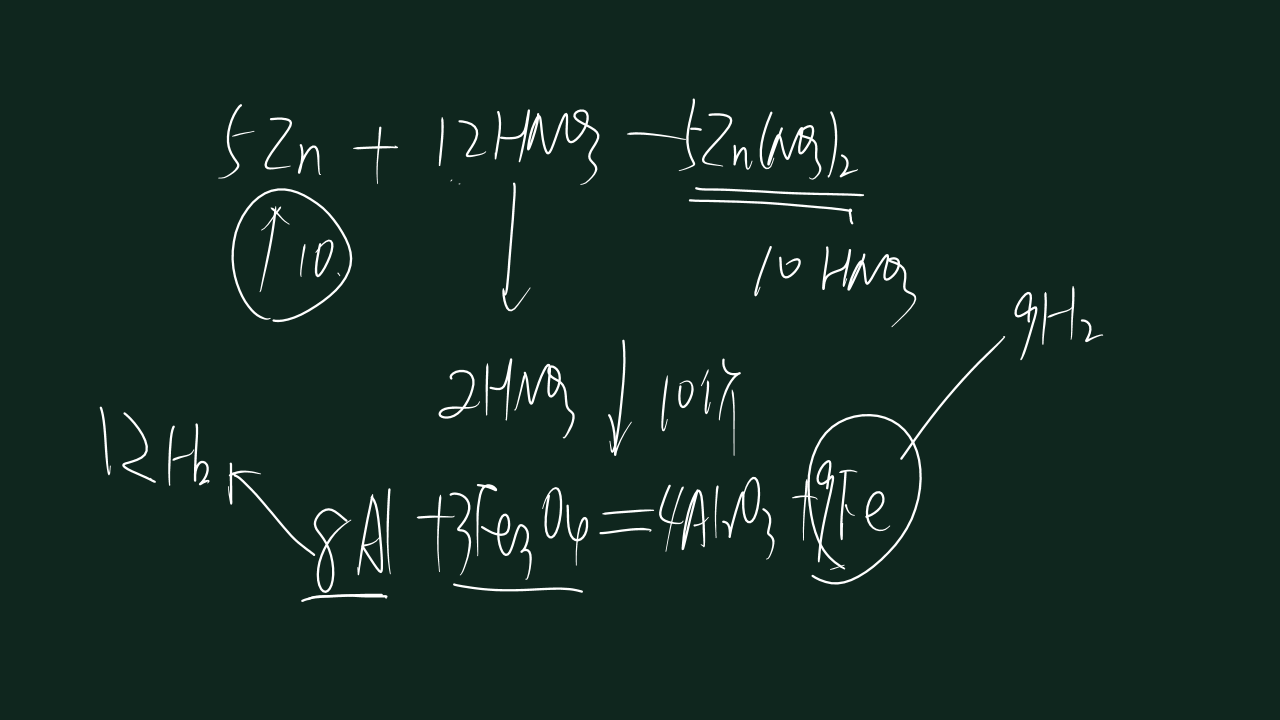 5Zn + 12HNO3 — 5Zn(NO3)2
↑10
10 HNO3
9H2
2HNO3 ↓ 10价
12H2
8Al + 3Fe3O4 = 4Al2O3 + 9Fe